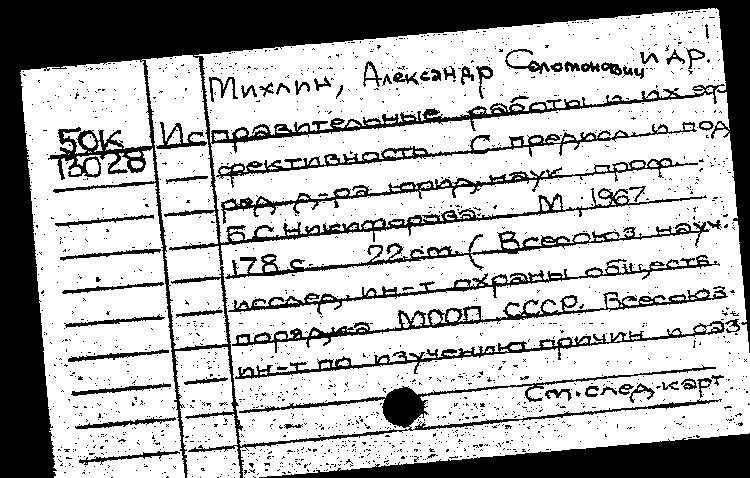 1
Михлин, Александр Соломонович и др.
50К Исправительные работы и их эф
13028 фективность. С предисл. и под
ред. д-ра юрид. наук, проф.
Б.С. Никифорова. М., 1967
178 с. 22 cm. (Всесоюз. науч.-
исслед. ин-т охраны обществ.
порядка МООП СССР. Всесоюз.
ин-т по изучению причин и раз
См. след. карт